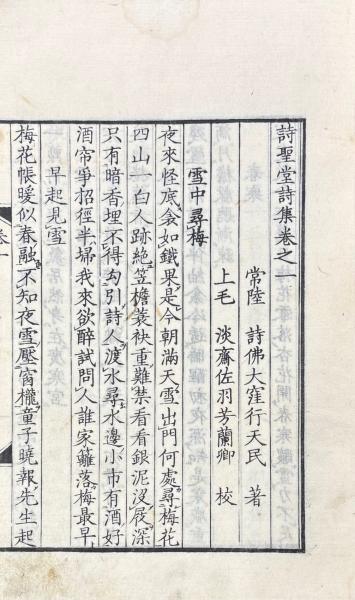 詩聖堂詩集卷之一
常陸　詩佛大窪行天民　著
上毛　淡齋佐羽芳蘭卿　校
雪中尋梅
夜來怪底衾如鐵果是今朝滿天雪出門何處尋梅花
四山一白人跡絶笠檐蓑袂重難禁看看銀泥沒屐深
只有暗香埋不得勾引詩人渡水尋水邊小市有酒好
酒帘爭招徑半埽我來欲醉試問人誰家籬落梅最早
早起見雪
梅花帳暖似春融不知夜雪壓窗櫳童子曉報先生起